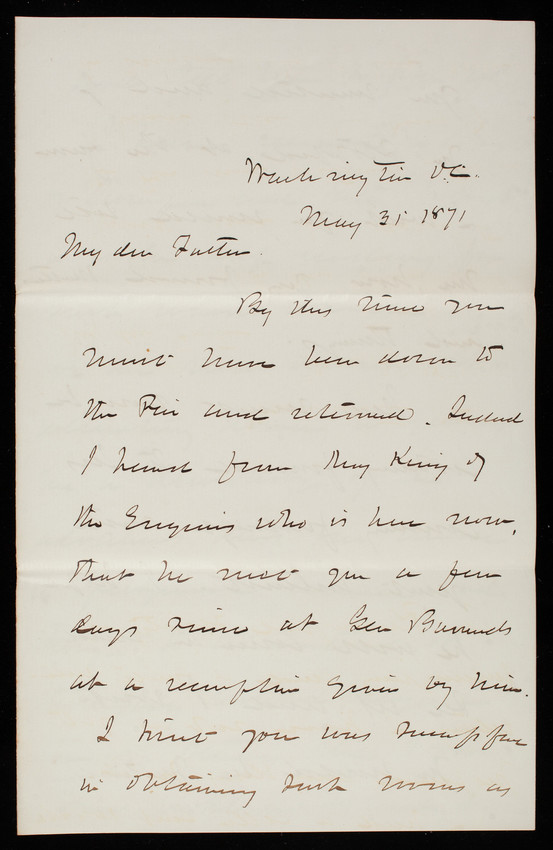 Washington D.C.
May 31 1871
My dear Father.
By this time you
must have been down to
the and returned. Indeed
I heard from Maj King of
the Engineers who is here now,
that he met you a few
days since at Gen Barnards
at a reception given by him.
I trust you was
in obtaining such rooms as